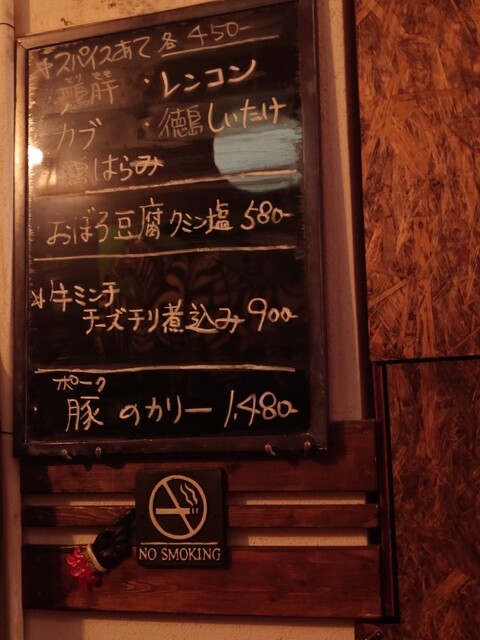 スパイスあて 各 450-
鶏肝 ・レンコン
カブ ・徳島しいたけ
鶏はらみ
おぼろ豆腐クミン塩 580-
牛ミンチ
チーズチリ煮込み 900-
ポーク
豚のカリー 1,480-
NO SMOKING